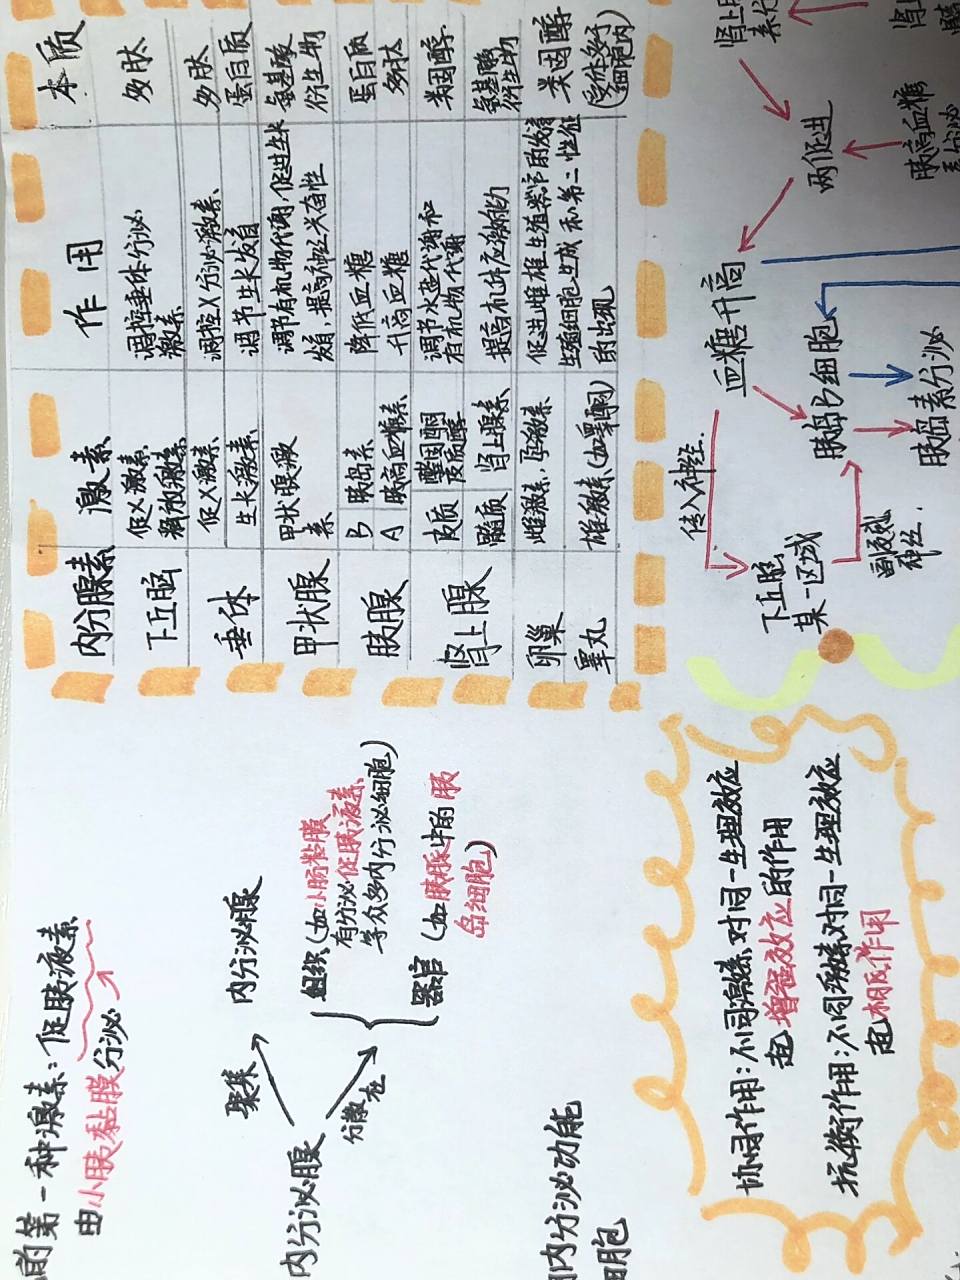 的第一种激素：促胰液素
由小胰黏膜分泌
内分泌腺
聚集
内分泌腺
分散在
组织(如小肠粘膜
有分泌促胰液素
等众多内分泌细胞)
器官(如胰腺中的胰
岛细胞)
内分泌功能
细胞
内分腺素 激素 作用 本质
下丘脑 促X激素 调控垂体分泌 多肽
释放激素 激素
垂体 促X激素 调控X分泌激素 多肽
生长激素 调节生长发育 蛋白质
甲状腺 甲状腺液 调节有机物代谢,促进生长 氨基酸
素 发育,提高神经兴奋性 衍生物
胰腺 B 胰岛素 降低血糖 蛋白质
A 胰高血糖素 升高血糖 多肽
肾上腺 皮质 醛固酮 调节水盐代谢和 类固醇
皮质醇 有机物代谢
髓质 肾上腺素 提高机体应激能力 氨基酸
衍生物
卵巢 雌激素,孕激素 促进雌雄生殖器官的发育 类固醇
睾丸 雄激素(如睾酮) 生殖细胞生成和第二性征 (受体位于
的出现 细胞内)
协同作用:不同激素对同一生理效应
起增强效应的作用
抗衡作用:不同激素对同一生理效应
起相反作用
肾上腺
两促进
胰高血糖
素分泌
血糖升高
传入神经
胰岛B细胞
胰岛素分泌
下丘脑
某一区域
副交感
神经